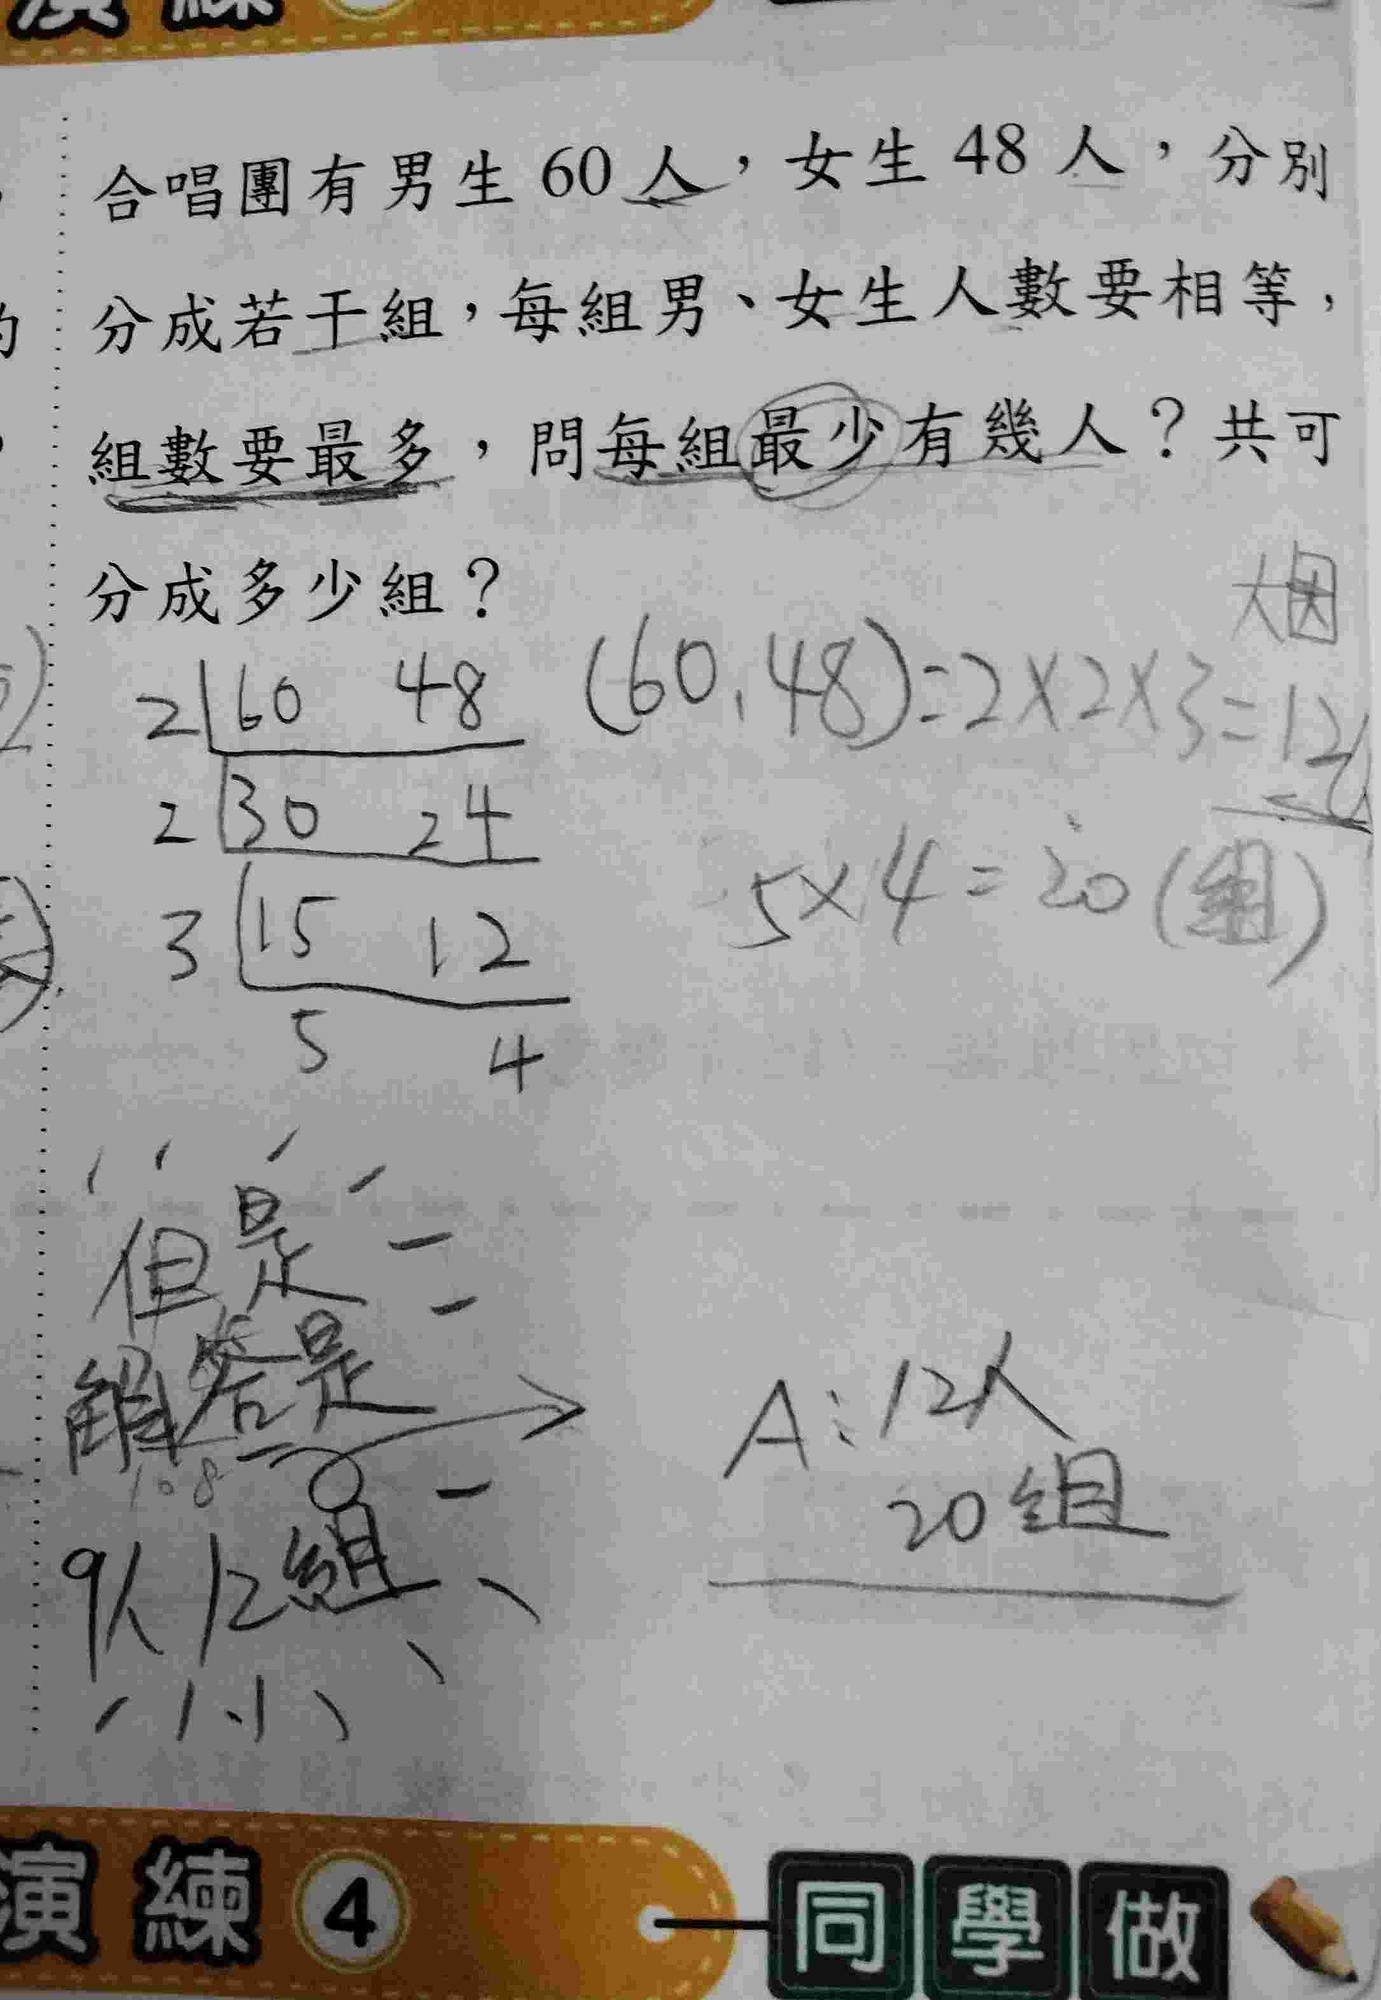 演練
合唱團有男生60人，女生48人，分別
分成若干組，每組男、女生人數要相等，
組數要最多，問每組最少有幾人？共可
分成多少組？
2 60 48
(60,48)=2×2×3=12人
2 30 24
5×4=20(組)
3 15 12
5 4
但是
解答是
108
9人12組
A:12人
20組
演練4 同學做